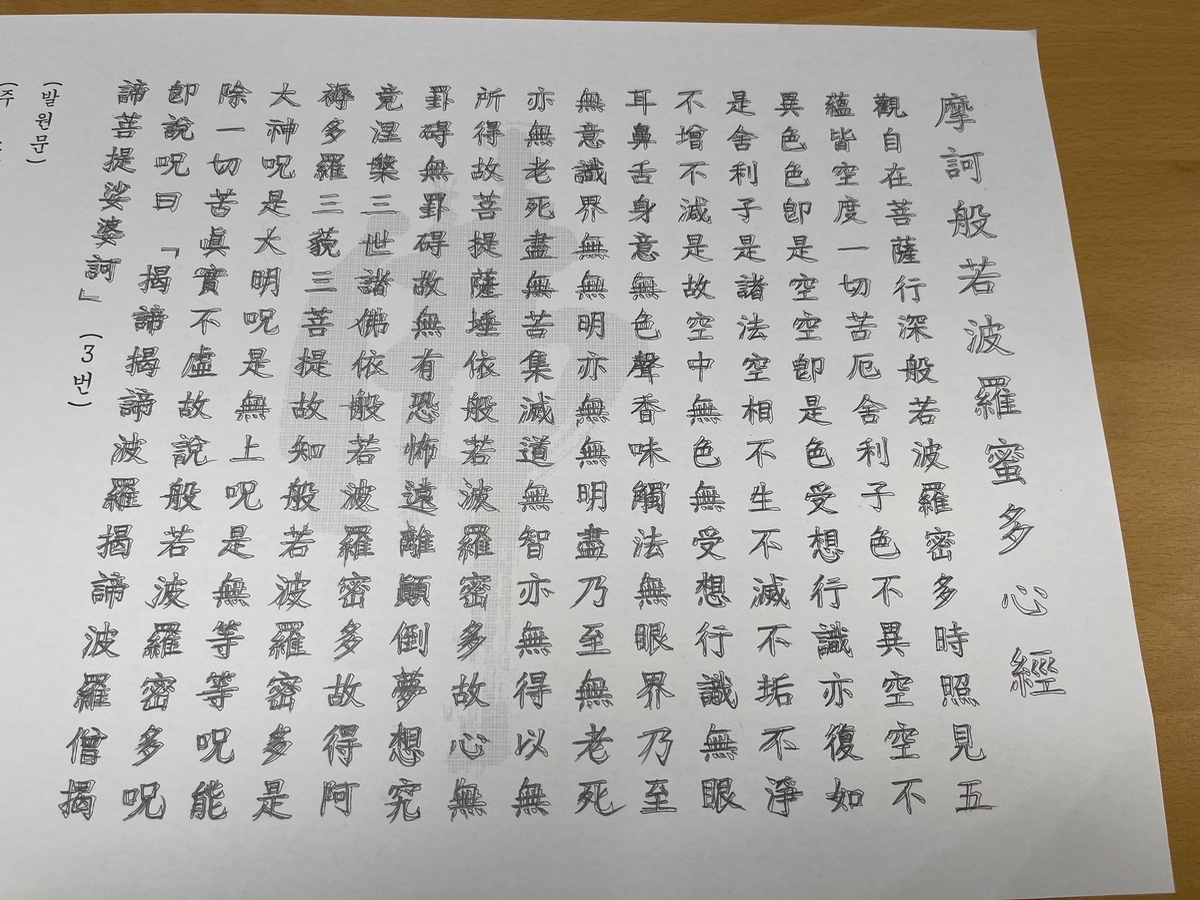 摩訶般若波羅蜜多心經
觀自在菩薩行深般若波羅密多時照見五
蘊皆空度一切苦厄舍利子色不異空空不
異色色卽是空空卽是色受想行識亦復如
是舍利子是諸法空相不生不滅不垢不淨
不增不減是故空中無色無受想行識無眼
耳鼻舌身意無色聲香味觸法無眼界乃至
無意識界無無明亦無無明盡乃至無老死
亦無老死盡無苦集滅道無智亦無得以無
所得故菩提薩埵依般若波羅密多故心無
罣碍無罣碍故無有恐怖遠離顚倒夢想究
竟涅槃三世諸佛依般若波羅密多故得阿
褥多羅三藐三菩提故知般若波羅密多是
大神呪是大明呪是無上呪是無等等呪能
除一切苦眞實不虛故說般若波羅密多呪
卽說呪曰「揭諦揭諦波羅揭諦波羅僧揭
諦菩提娑婆訶」(3번)
(발원문)
(주